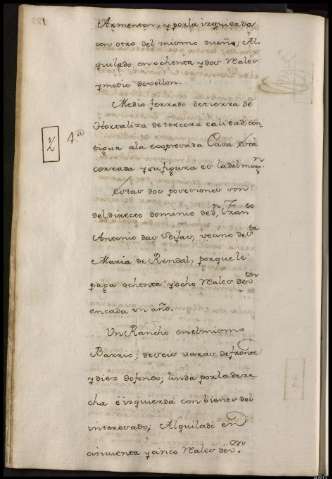 Armenton, y porla izquierda
con otro del mismo dueño, Al
quilado en ochenta y dos Rales
y medio de vellon.
Medio ferrado detierra de
Hortaliza detercera calidad, con
tigua ala expresada Casa, está
cercada, y su figura es la del marg.n
Estas dos posesiones son
del directo dominio de d.n Fran.co
Antonio das Seijas, vecino de S.ta
Maria de Rendal, porque le
paga ochenta y ocho Rales de v.on
encada un año.
Un Rancho enelmismo
Barrio; de seis varas defrente
y diez defondo, linda porla dere
cha è izquierda con bienes del
interesado, Alquilado en
cinquenta y cinco Rales de v.on
1/2
4.a